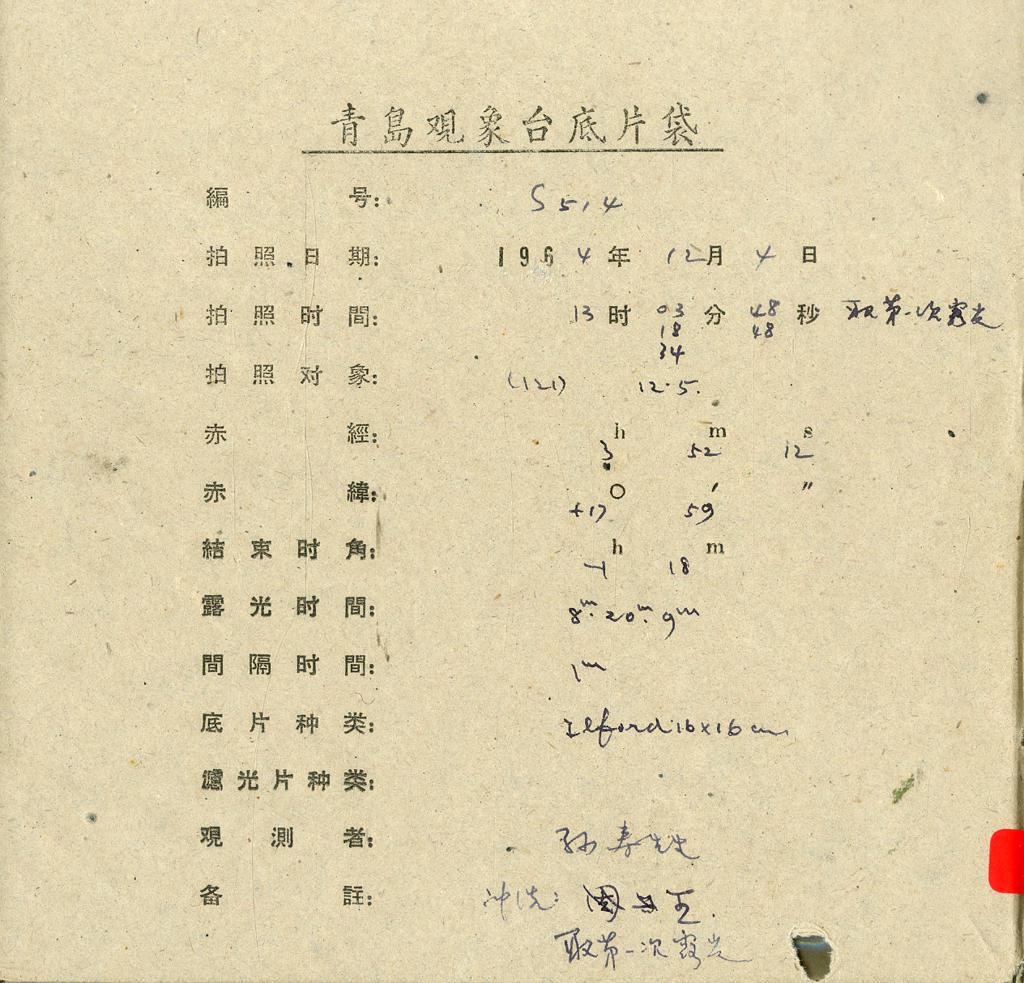 青島观象台底片袋
編号: S514
拍照日期: 1964年 12月 4日
拍照时間: 13时 03分 48秒 取第一次露光
18 48
34
拍照对象: (121) 12.5.
赤經: 3h 52m 12s
赤緯: +17° 59′ ″
結束时角: -1h 18m
露光时間: 8m. 20m. 9m
間隔时間: 1m
底片种类: Ilford 16x16 cm
濾光片种类:
观測者: 孙寿
备註: 冲洗: 王.
取第一次露光